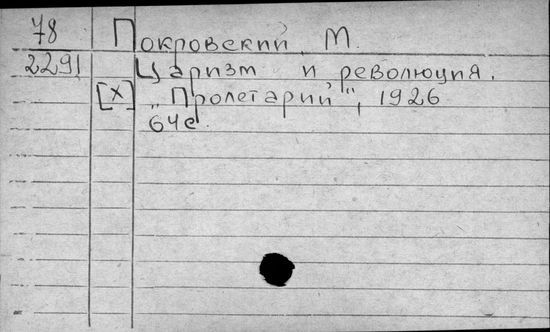 78 Покровский, М.
2291 Царизм и революция.
[X] „Пролетарий", 1926
64с.